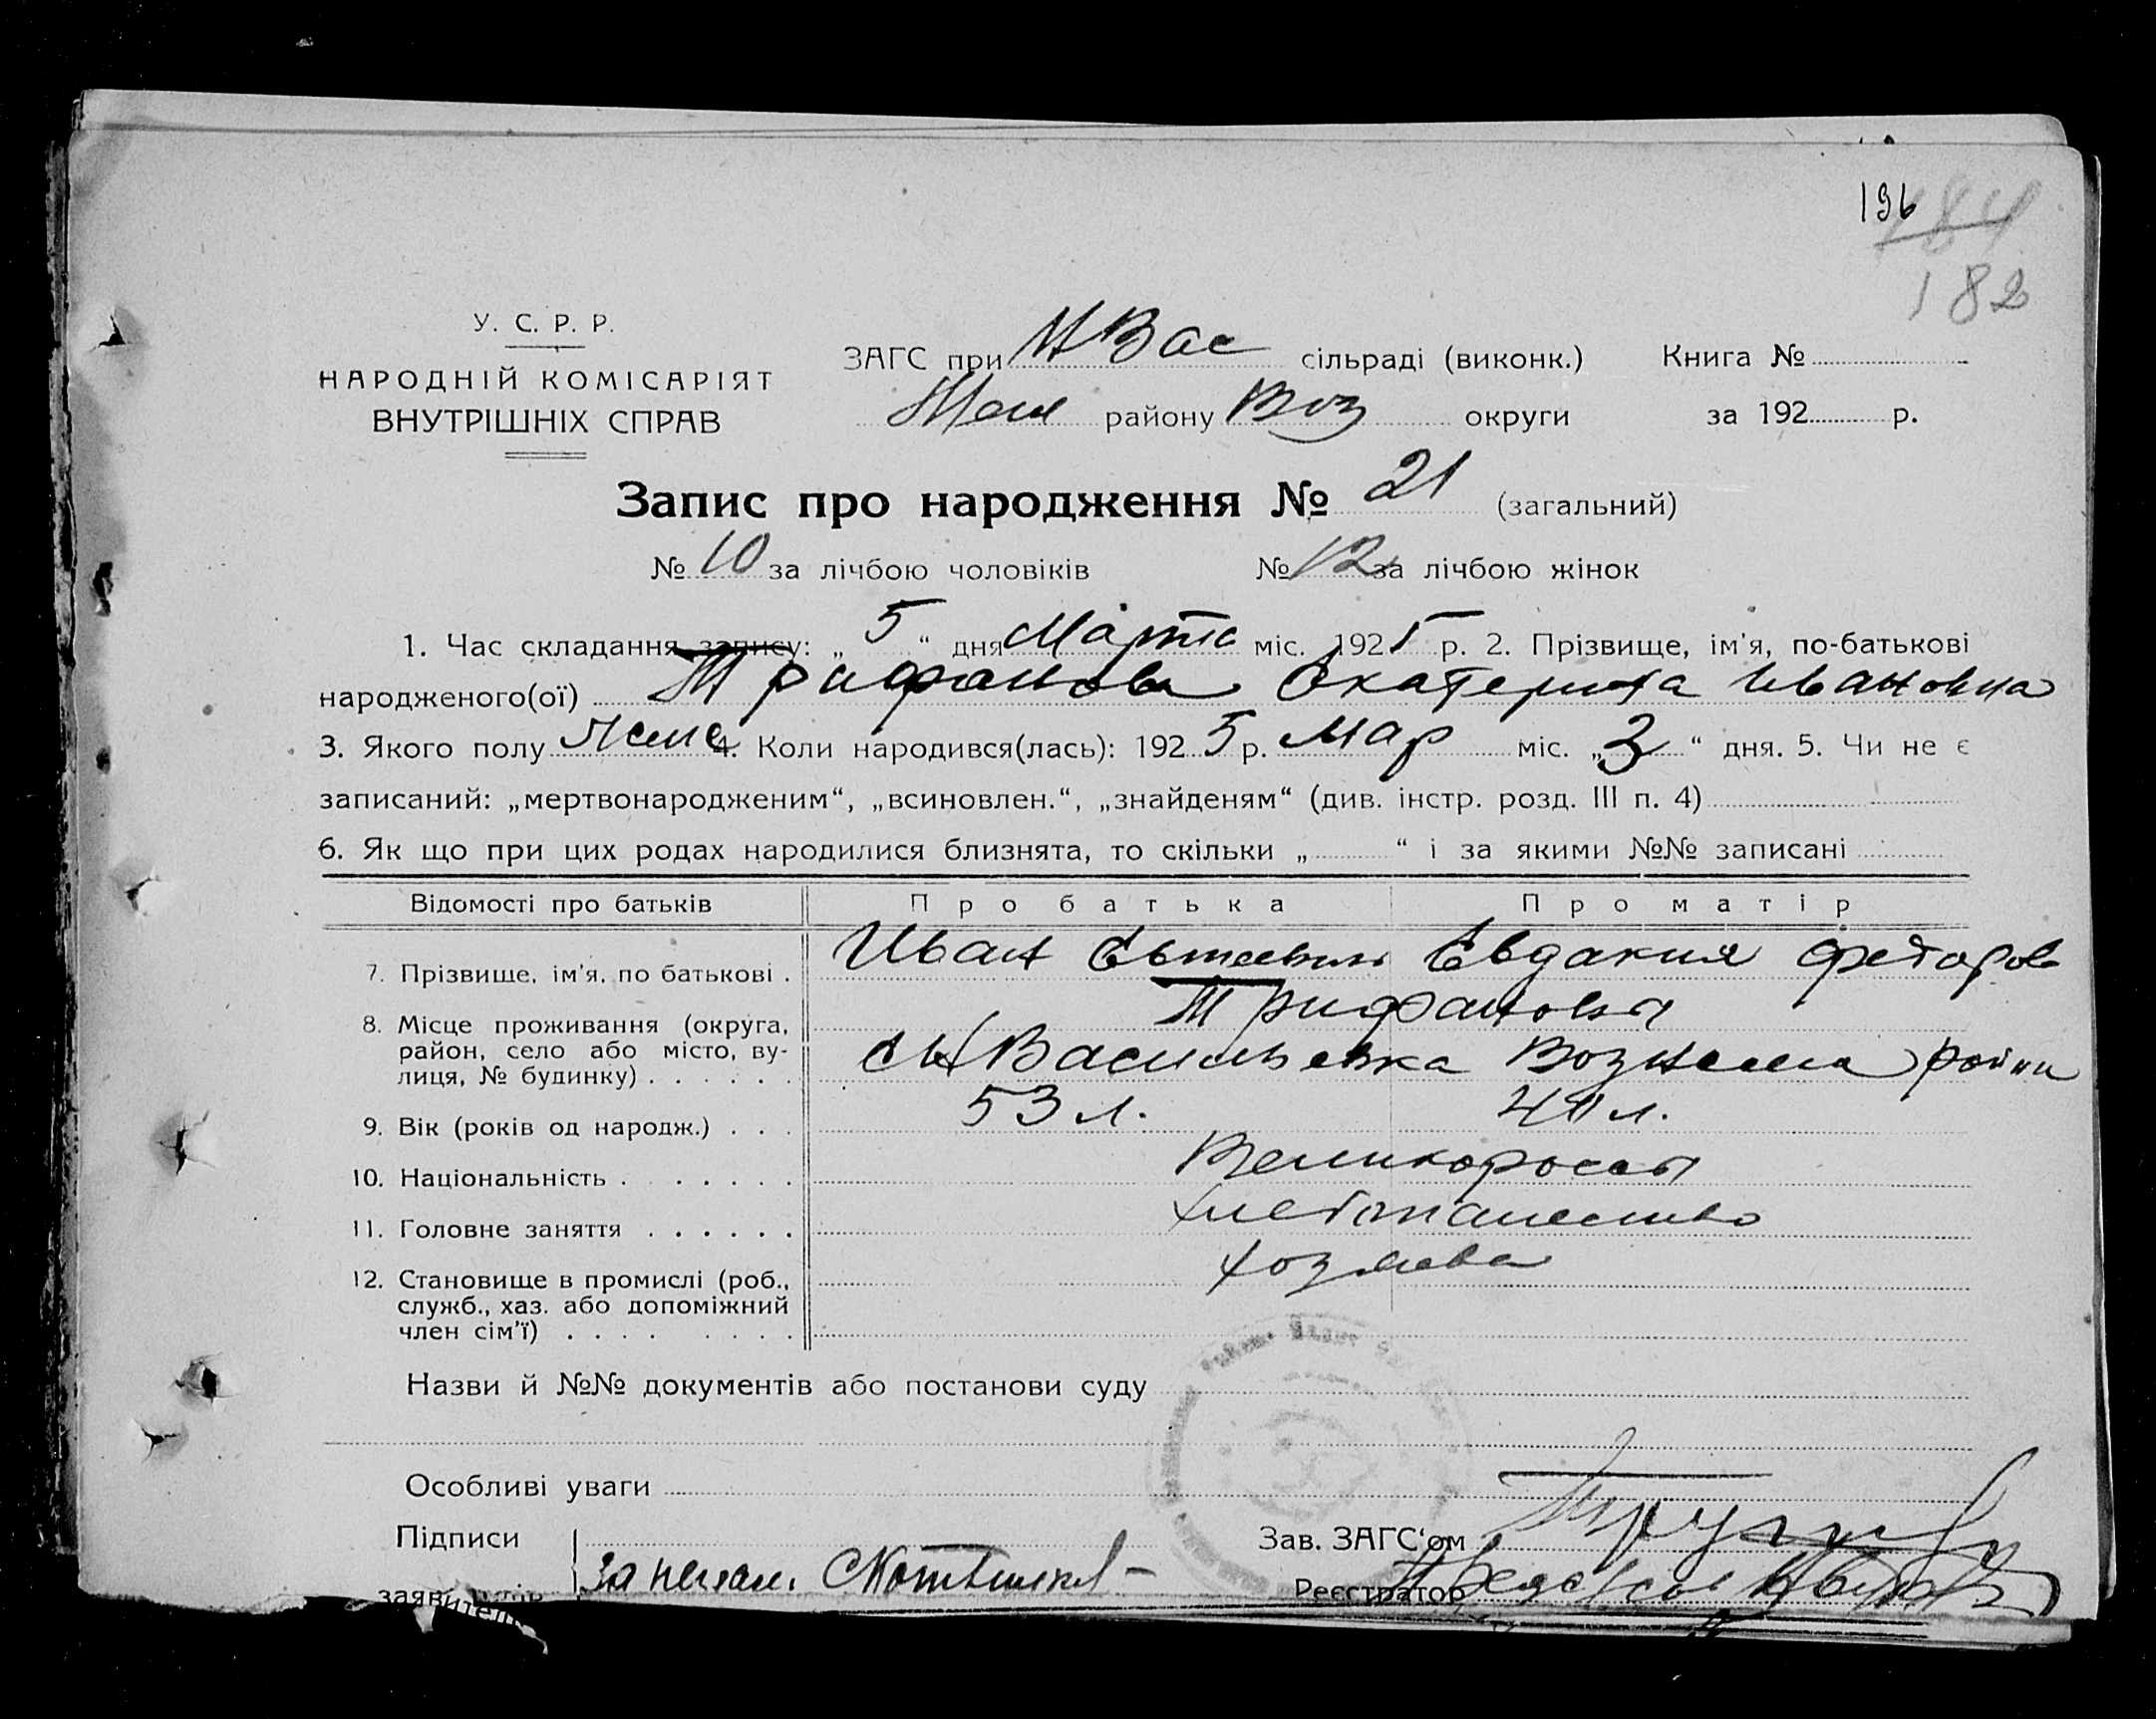 196
184
182
У. С. Р. Р.
НАРОДНІЙ КОМІСАРІЯТ
ВНУТРІШНІХ СПРАВ
ЗАГС при НВас сільраді (виконк.) Книга №
району Воз округи за 192 р.
Запис про народження № 21 (загальний)
№ 10 за лічбою чоловіків № 12 за лічбою жінок
1. Час складання запису: „ 5 “ дня Марта міс. 1925 р. 2. Прізвище, ім'я, по-батькові
народженого(ої) Трифанова Екатерина Ивановна
3. Якого полу женс 4. Коли народився(лась): 192 5 р. Мар міс. „ 3 “ дня. 5. Чи не є
записаний: „мертвонародженим“, „всиновлен.“, „знайденям“ (див. інстр. розд. III п. 4)
6. Як що при цих родах народилися близнята, то скільки „ “ і за якими №№ записані
Відомості про батьків Про батька Про матір
7. Прізвище, ім'я, по батькові . Иван Евдакия Фетаров
Трифановы
8. Місце проживання (округа,
район, село або місто, ву-
лиця, № будинку) . . . . . . сНВасильевка района
9. Вік (років од народж.) . . . 53 л. л.
10. Національність . . . . . . . Великороссы
11. Головне заняття . . . . . . хлебопашество
12. Становище в промислі (роб.,
служб., хаз. або допоміжний
член сім'ї) . . . . . . . . хозяева
Назви й №№ документів або постанови суду
Особливі уваги
Підписи
заявителів
Зав. ЗАГС‘ом
Реєстратор